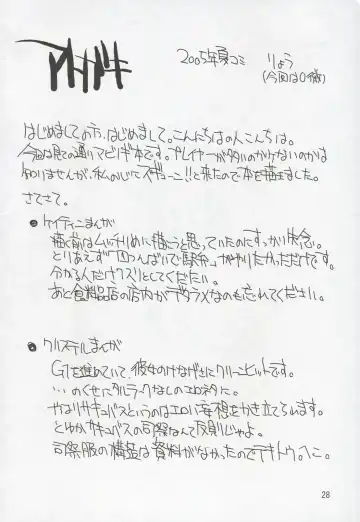 アトガキ
2005年夏コミ りょう
(今回は0滴)
はじめましての方、はじめまして。こんにちはの人こんちは。
今回は見ての通りマビノギ本です。プレイヤーが多いのか少ないのかは
知りませんが、私のじにズギューン!!と来たので本を描きました。
さてさて。
● ケイティンまんが
描く前はムッチリめに描こうと思っていたのにすっかり失念。
とりあえず「四つんばいで駅弁」がやりたかっただけです。
分かる人だけクスリとしてください。
あと食料品店の店内がデタラメなのも忘れてください。
● クリステルまんが
G1を進めていて、彼女のけなげさにクリーンヒットです。
…のくせにタルラークなしのエロネタに。
やはりサキュバスというのはエロい妄想をかき立てられます。
とゆーかサキュバスの司祭なんて反則じゃよ。
司祭服の構造は資料がなかったのでテキトウ。へこ。
28